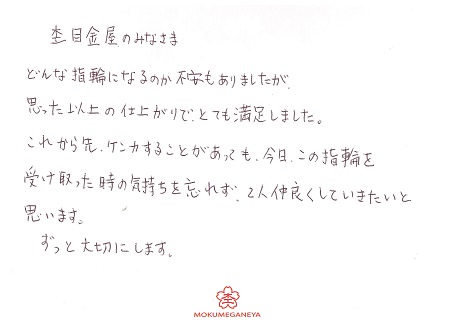 杢目金屋のみなさま
どんな指輪になるのか不安もありましたが、
思った以上の仕上がりで、とても満足しました。
これから先、ケンカすることがあっても、今日、この指輪を
受け取った時の気持ちを忘れず、2人仲良くしていきたいと
思います。
ずっと大切にします。
MOKUMEGANEYA